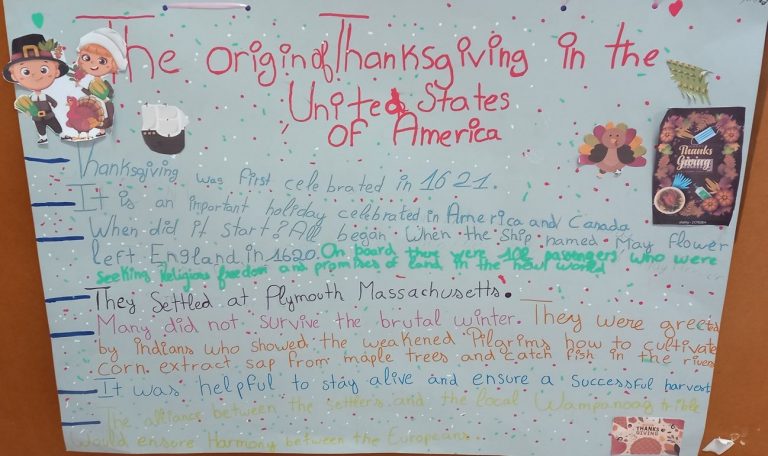 The origin of Thanksgiving in the
United States
of America
Thanks
Giving
Thanksgiving was first celebrated in 1621.
It is an important holiday celebrated in America and Canada
When did it start? All began when the ship named May flower
left England in 1620. On board there were 102 passengers who were
seeking Religious freedom and promises of land in the new world
They settled at Plymouth Massachusetts.
Many did not survive the brutal winter. They were greeted
by indians who showed the weakened Pilgrims how to cultivate
corn. extract sap from maple trees and catch fish in the rivers
It was helpful to stay alive and ensure a successful harvest
The alliance between the settlers and the local Wampanoag trible
Would ensure Harmony between the Europeans.
THANKS
GIVING